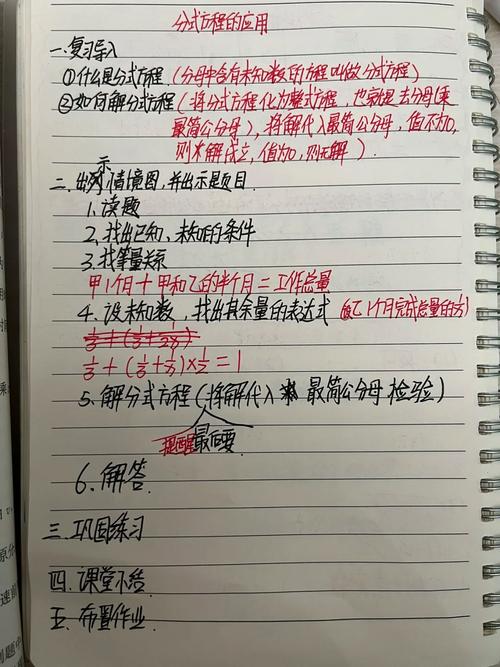 分式方程的应用
一.复习导入
①什么是分式方程(分母中含有未知数的方程叫做分式方程)
②如何解分式方程(将分式方程化为整式方程,也就是去分母(乘
最简公分母),将解代入最简公分母,值不为0,
则原解成立,值为0,则无解).
示
二.出情境图,并出示题目.
1.读题
2.找出已知、未知的条件
3.找等量关系
甲1个月+甲和乙的半个月=工作总量
4.设未知数,找出其余量的表达式(设乙1个月完成总量的)
1/3+(1/3+1/x)×1/2=1
5.解分式方程(将解代入最简公分母检验)
提醒最后要
6.解答.
三.巩固练习
四.课堂小结
五.布置作业.